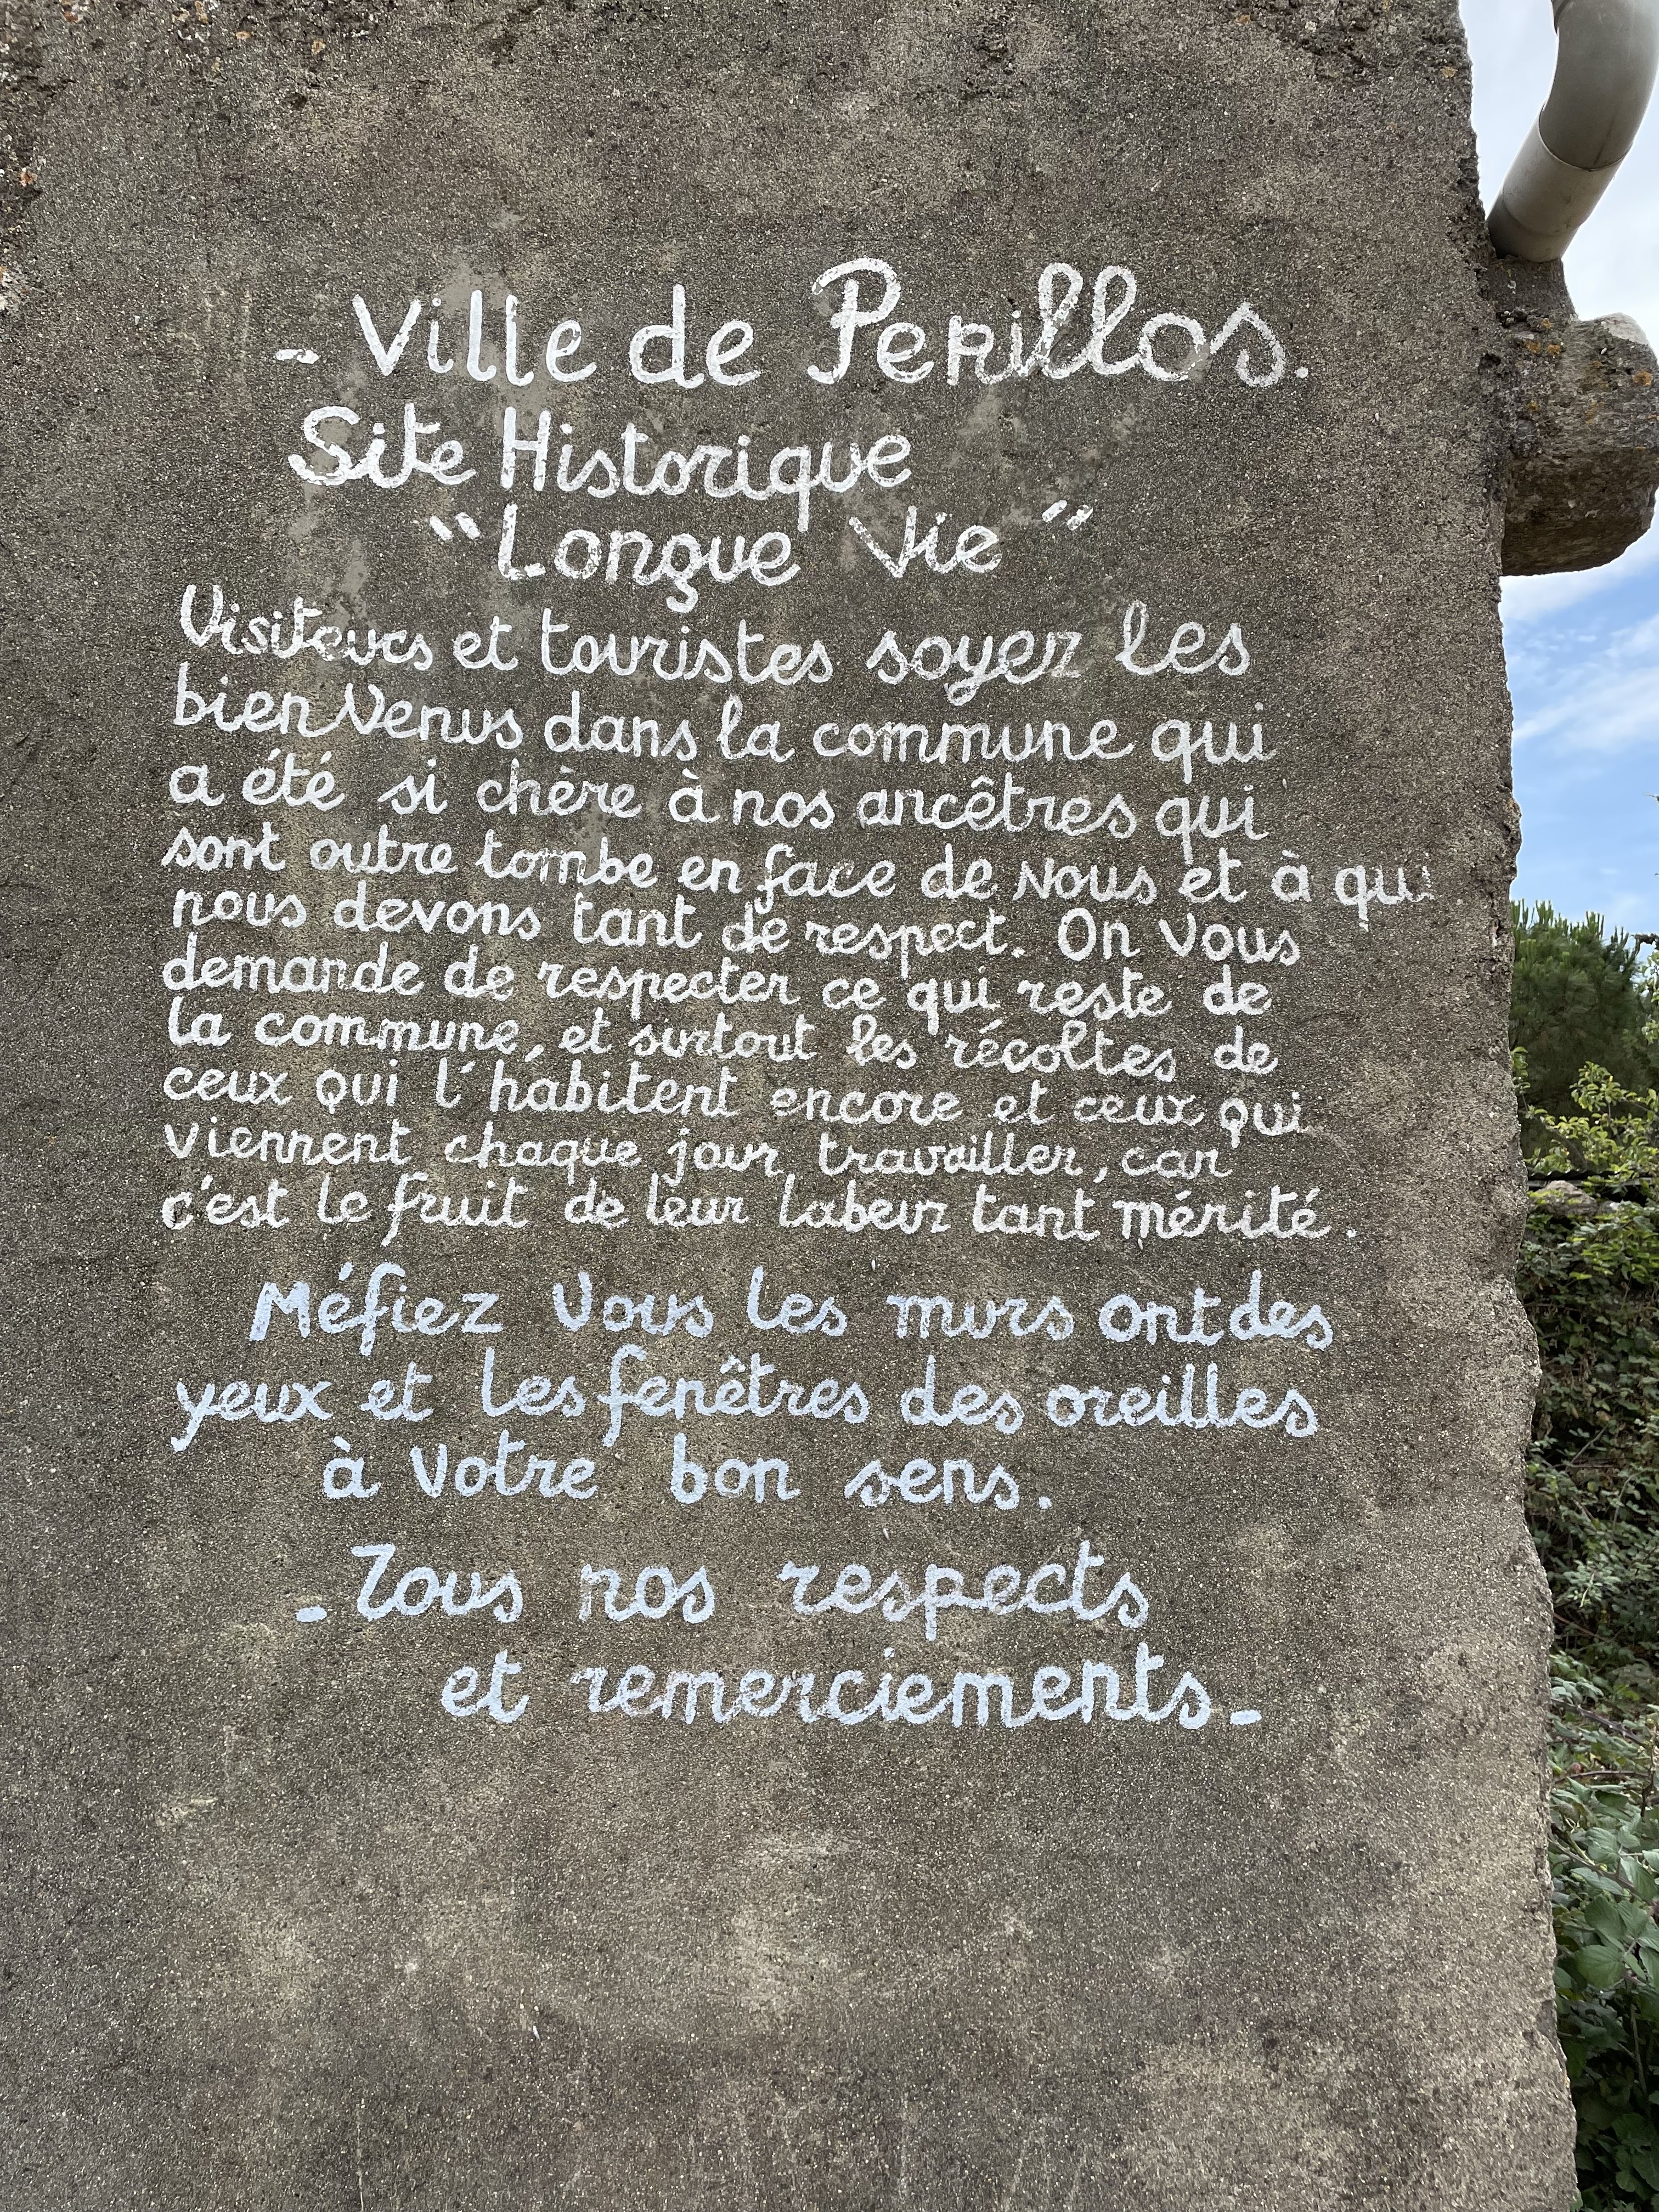 - Ville de Perillos.
Site Historique
"Longue Vie"
Visiteurs et touristes soyez les
bien Venus dans la commune qui
a été si chère à nos ancêtres qui
sont outre tombe en face de Nous et à qui
nous devons tant de respect. On Vous
demande de respecter ce qui reste de
la commune, et surtout les récoltes de
ceux qui l'habitent encore et ceux qui
viennent chaque jour travailler, car
c'est le fruit de leur labeur tant mérité.
Méfiez Vous les murs ont des
yeux et les fenêtres des oreilles
à Votre bon sens.
- Tous nos respects
et remerciements -